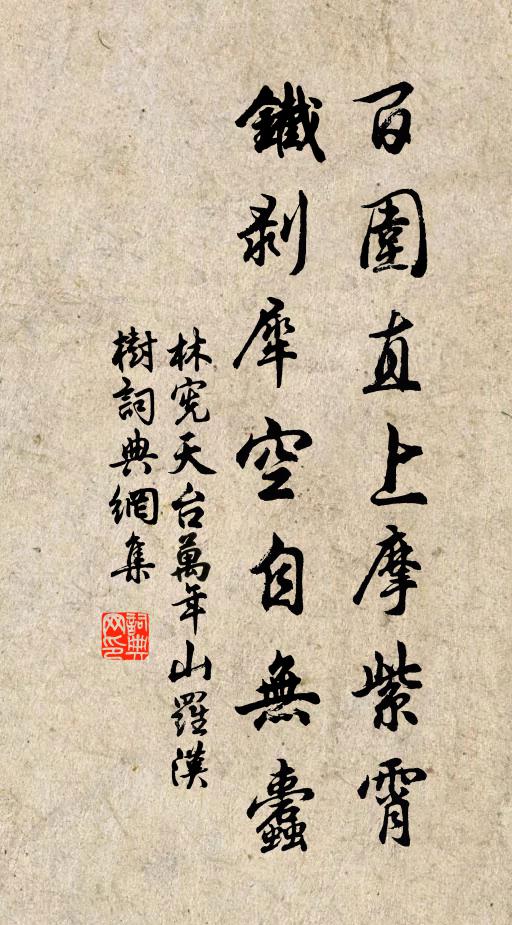 百圍直上摩紫霄
鐵剥犀空自無蠹
林宪天台萬年山羅漢
樹詞典網集
詞典
网印